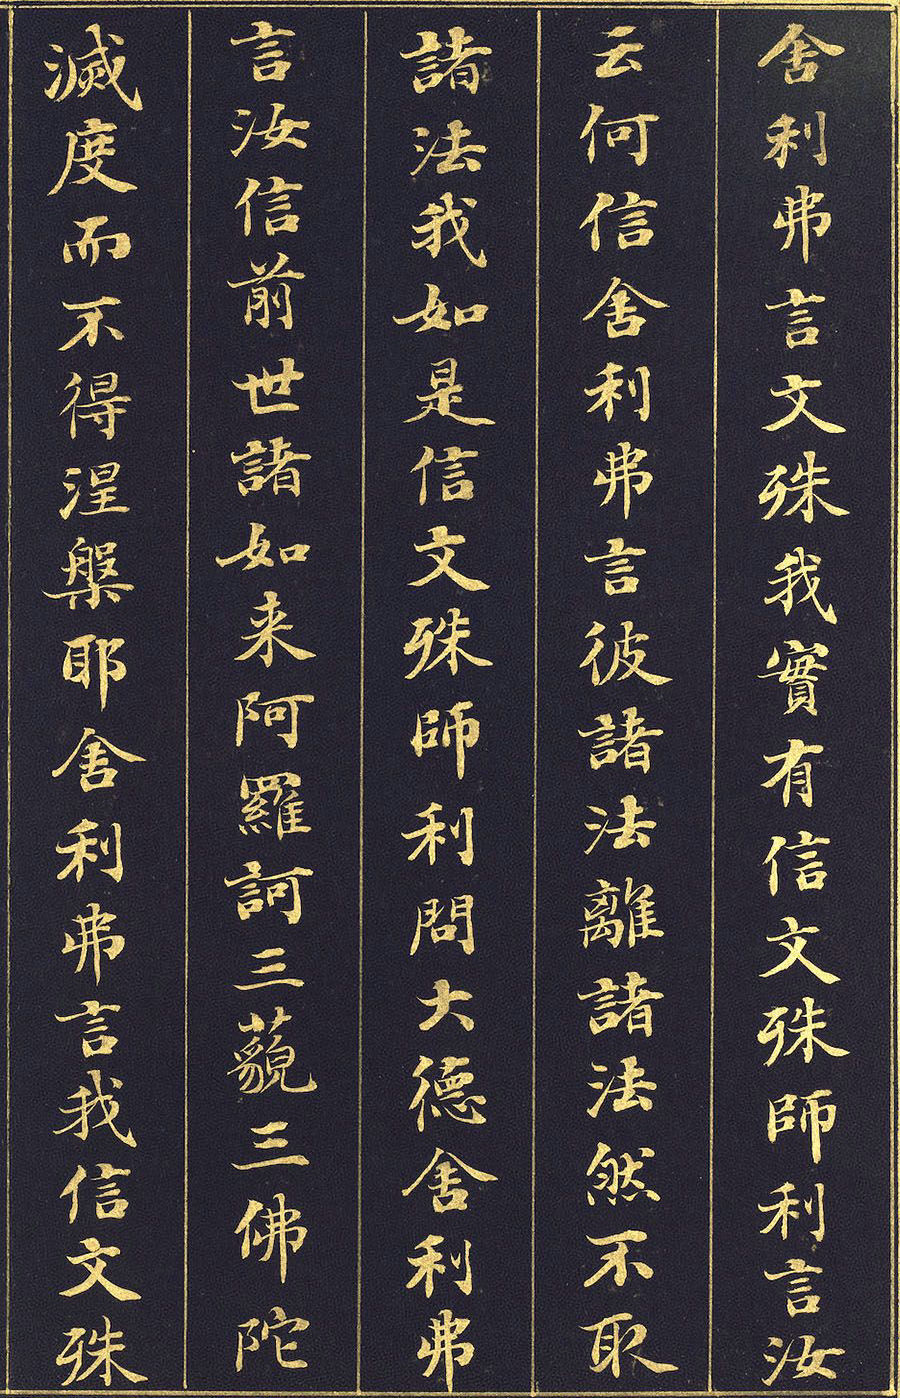 舍利弗言文殊我實有信文殊師利言汝
云何信舍利弗言彼諸法離諸法然不取
諸法我如是信文殊師利問大德舍利弗
言汝信前世諸如来阿羅訶三藐三佛陀
滅度而不得涅槃耶舍利弗言我信文殊